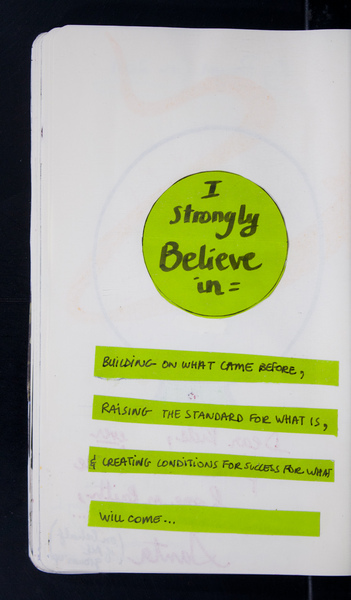 I
Strongly
Believe
in =
BUILDING ON WHAT CAME BEFORE,
RAISING THE STANDARD FOR WHAT IS,
& CREATING CONDITIONS FOR SUCCESS FOR WHAT
WILL COME...